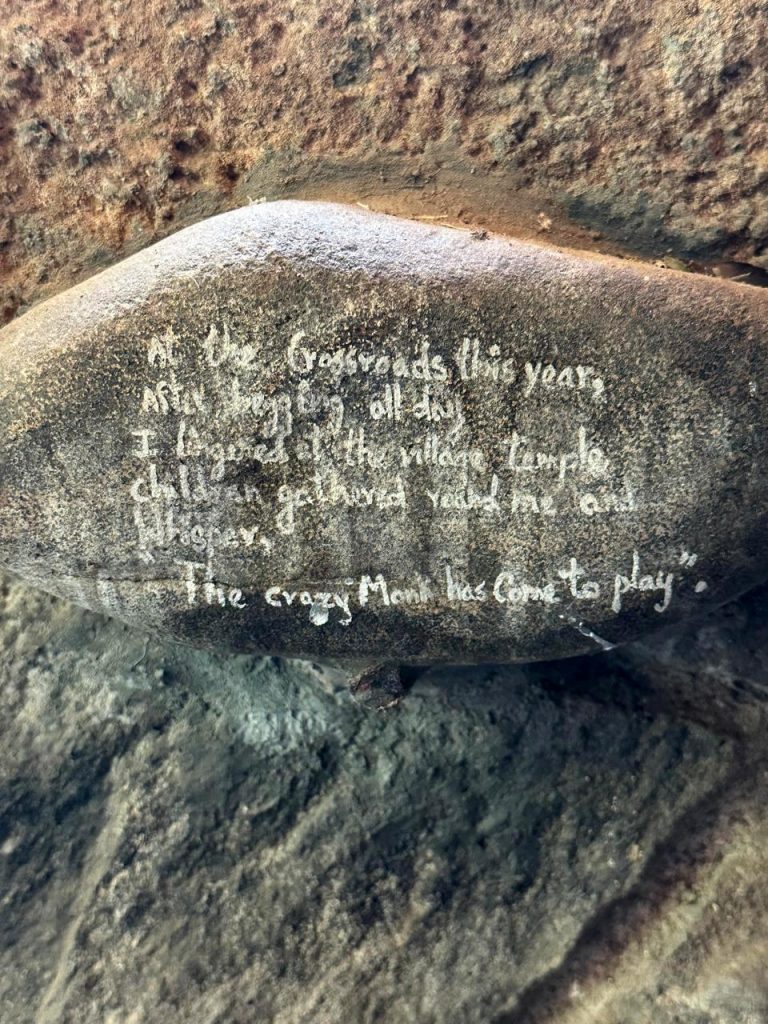 At the Crossroads this year,
After begging all day
I lingered at the village temple
children gathered round me and
Whisper,
"The crazy Monk has Come to play".